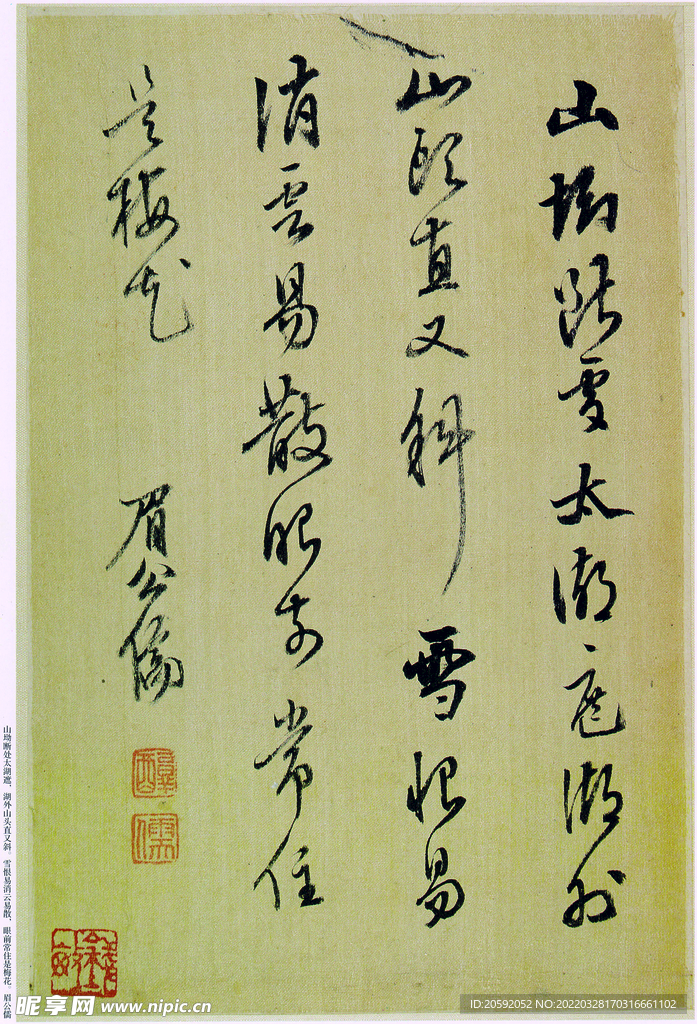 山坳断處太湖遮湖外
山頭直又斜雪恨易
消雲易散眼前常住
是梅花
眉公儒
醇
儒
山坳断处太湖遮，湖外山头直又斜。雪恨易消云易散，眼前常住是梅花。眉公儒
昵享网 www.nipic.cn
ID:20592052 NO:20220328170316661102